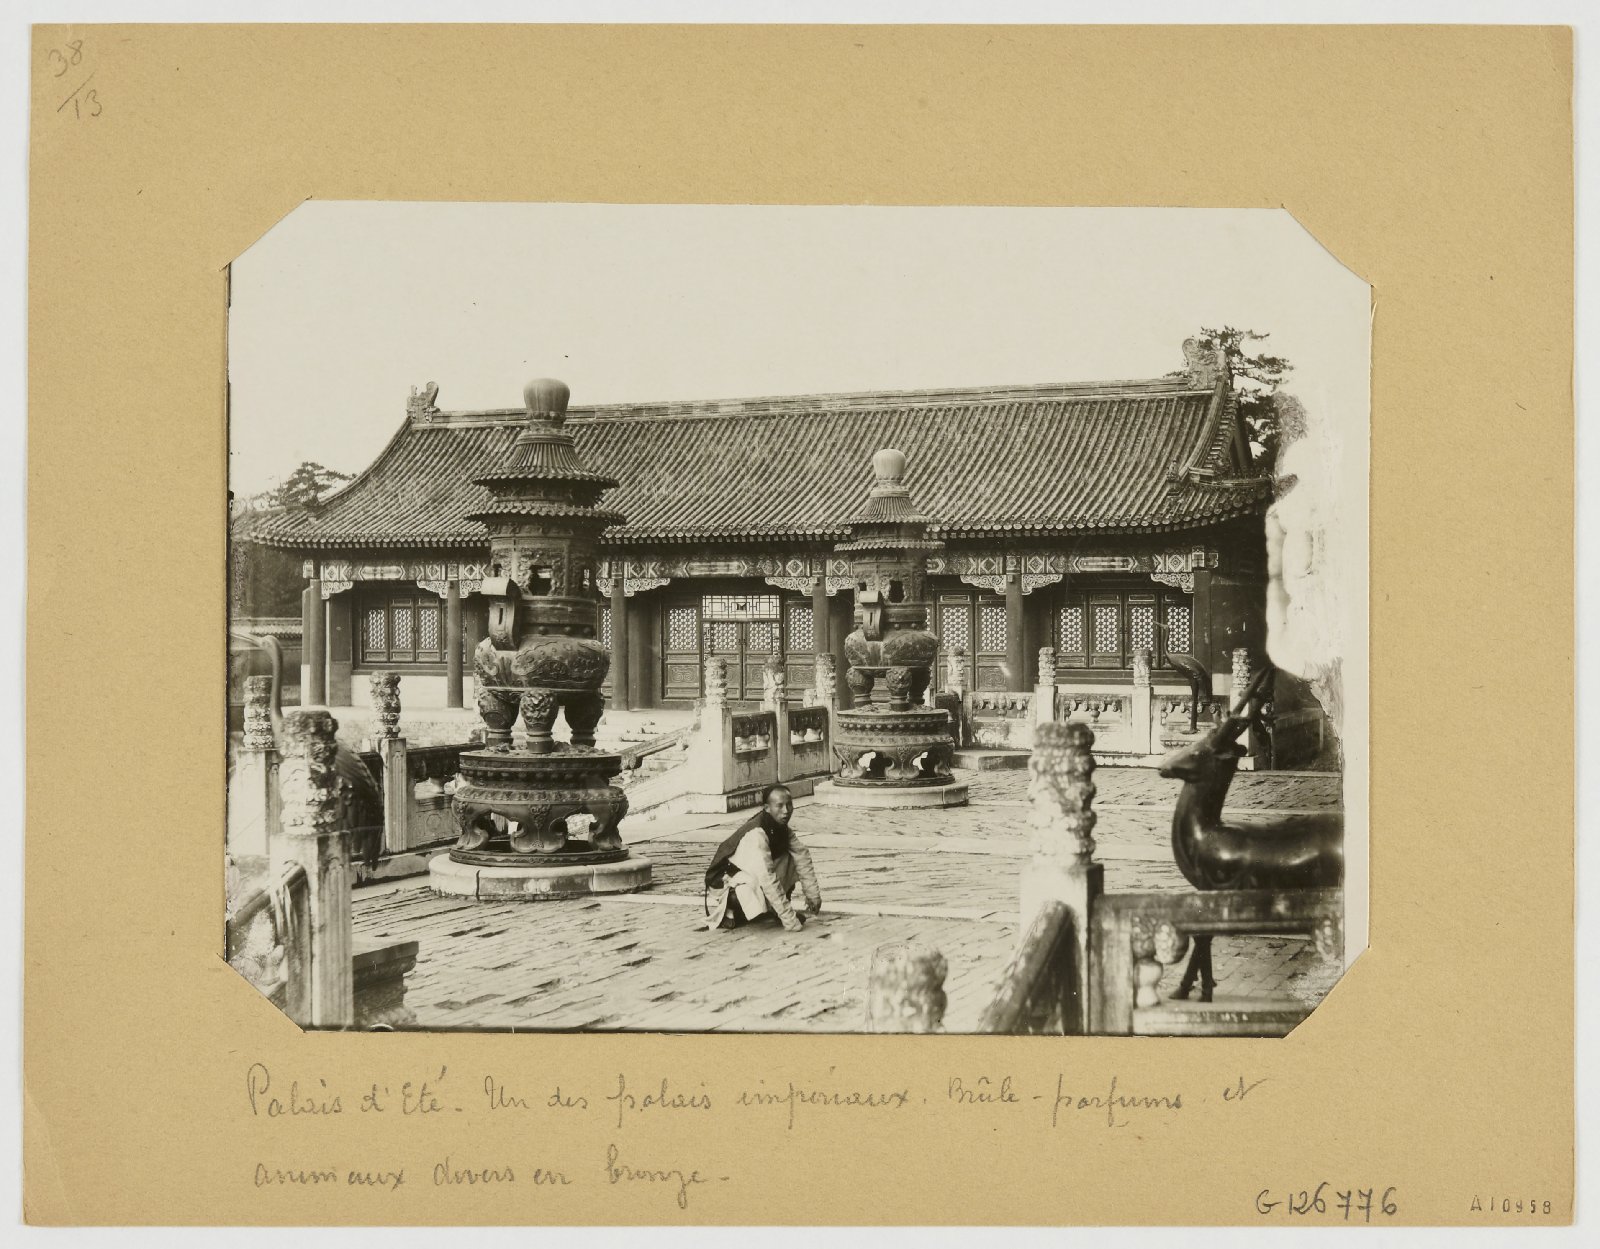 38
/13
Palais d'Eté. Un des palais impériaux. Brûle-parfums et
animaux divers en bronze-
G126776
A10958